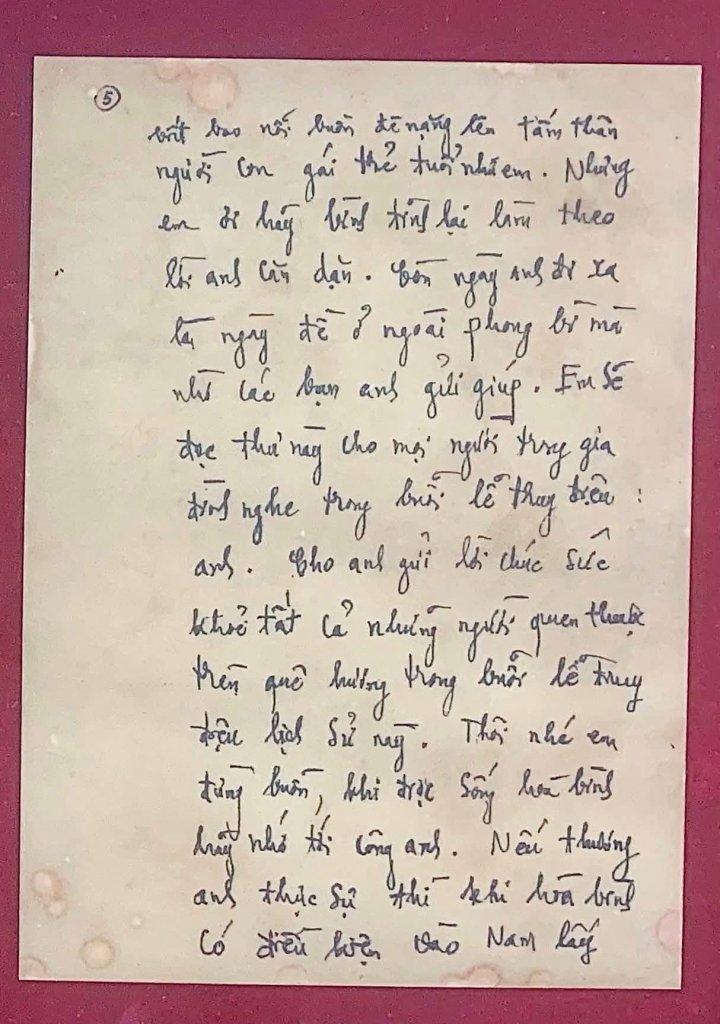 5
biết bao nỗi buồn đè nặng lên tấm thân
người con gái trẻ tuổi nhiem. Nhưng
em ơi hãy bình tĩnh lại làm theo
lời anh căn dặn. Còn ngày anh đi xa
là ngày đề ở ngoài phong bì mà
nhờ các bạn anh gửi giúp. Em sẽ
đọc thư này cho mọi người trong gia
đình nghe trong buổi lễ truy điệu
anh. Cho anh gửi lời chúc sức
khoẻ tất cả những người quen thuộc
trên quê hương trong buổi lễ truy
điệu lịch sử này. Thôi nhé em
đừng buồn, khi được sống hoà bình
hãy nhớ tới công anh. Nếu thương
anh thực sự thì khi hoà bình
có điều kiện vào Nam lấy